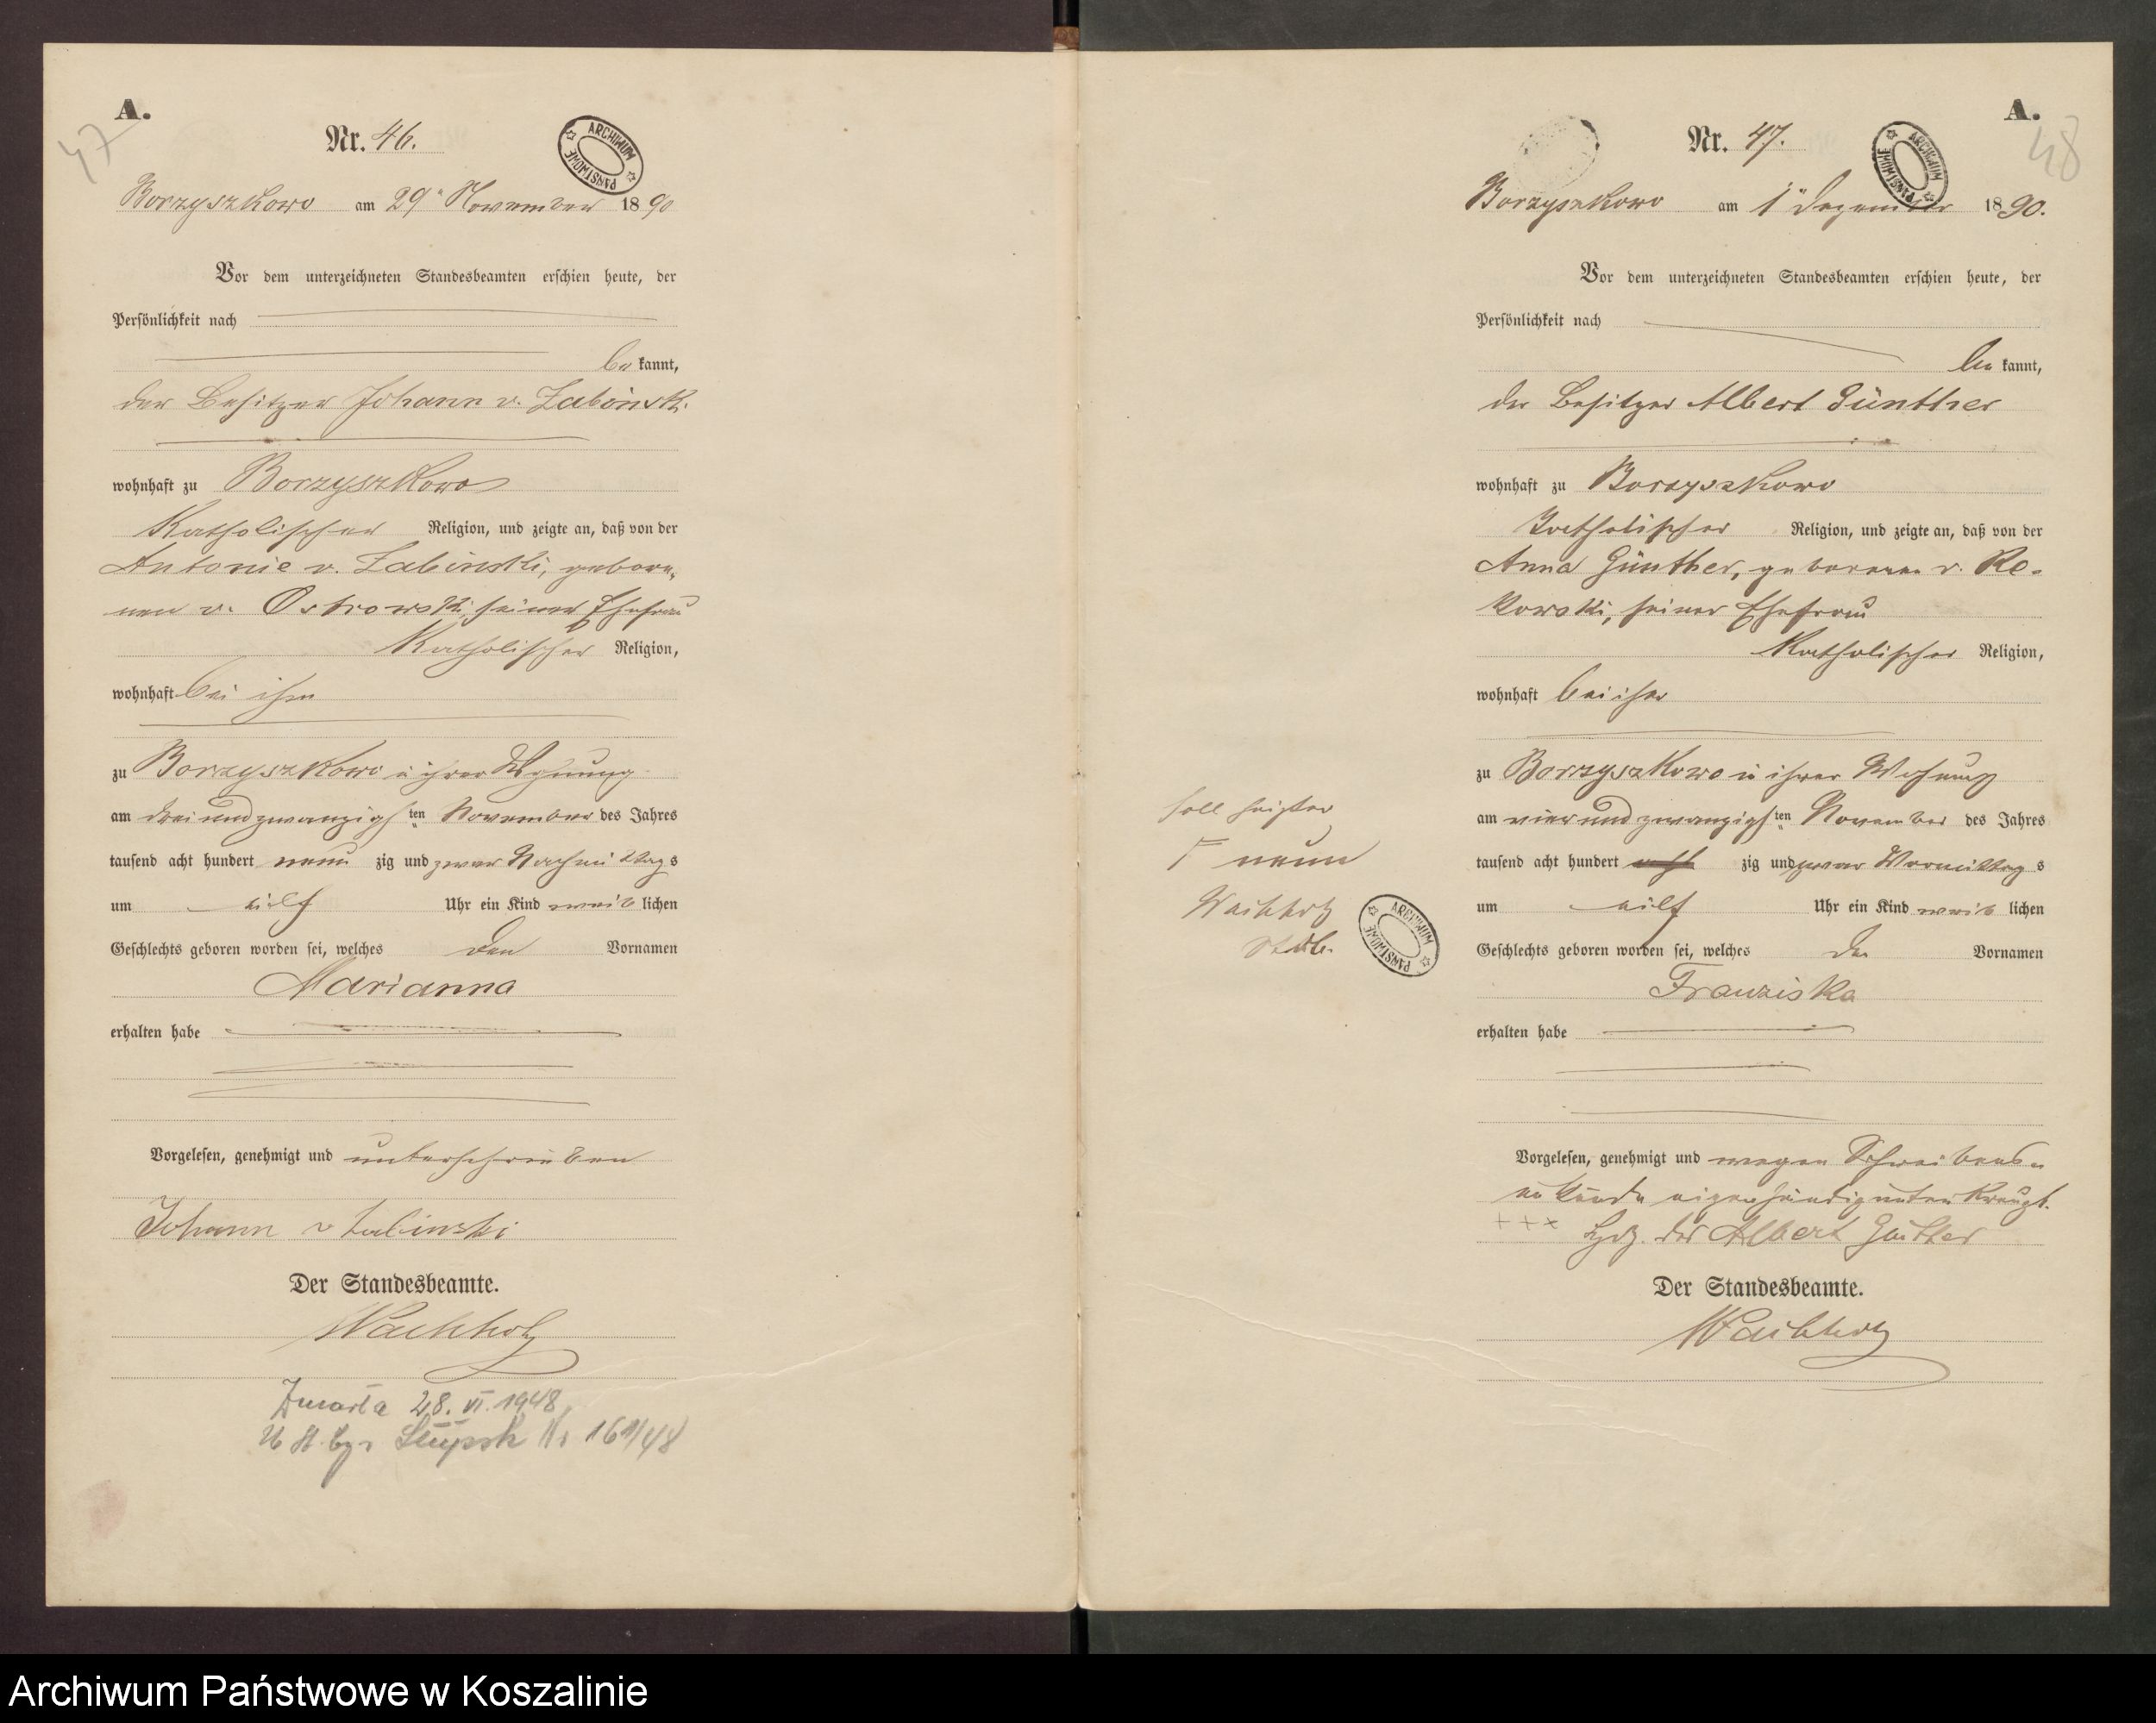 A.
47
Nr. 46.
ARCHIWUM PAŃSTWOWE
Borzyszkowo am 29n November 1890
Vor dem unterzeichneten Standesbeamten erschien heute, der
Persönlichkeit nach
be kannt,
der Besitzer Johann v. Zabinski
wohnhaft zu Borzyszkowo
Katholischer Religion, und zeigte an, daß von der
Antonie v. Zabinski, gebore,
nen v. Ostrowski, seiner Ehefrau
Katholischer Religion,
wohnhaft bei ihm
zu Borzyszkowo in ihrer Wohnung
am drei und zwanzigsten November des Jahres
tausend acht hundert neun zig und zwar Nachmittags
um eilf Uhr ein Kind weiblichen
Geschlechts geboren worden sei, welches den Vornamen
Marianna
erhalten habe
Vorgelesen, genehmigt und unterschrieben
Johann v Zabinski
Der Standesbeamte.
Wachholz
Zmarła 28. VI. 1948
Słupsk Nr 161/48
A.
48
Nr. 47.
ARCHIWUM PAŃSTWOWE
Borzyszkowo am 1n Dezember 1890.
Vor dem unterzeichneten Standesbeamten erschien heute, der
Persönlichkeit nach
be kannt,
der Besitzer Albert Günther
wohnhaft zu Borzyszkowo
Katholischer Religion, und zeigte an, daß von der
Anna Günther, geborenen v. Re-
kowski, seiner Ehefrau
Katholischer Religion,
wohnhaft bei ihm
zu Borzyszkowo in ihrer Wohnung
am vier und zwanzigsten November des Jahres
tausend acht hundert acht zig und zwar Vormittags
um eilf Uhr ein Kind weiblichen
Geschlechts geboren worden sei, welches den Vornamen
Franziska
erhalten habe
soll heißen
neun
Wachholz
Stdb.
ARCHIWUM PAŃSTWOWE
Vorgelesen, genehmigt und wegen Schreibens-
unkunde eigenhändig unterkreuzt.
+++ Hdz. des Albert Günther
Der Standesbeamte.
Wachholz
Archiwum Państwowe w Koszalinie